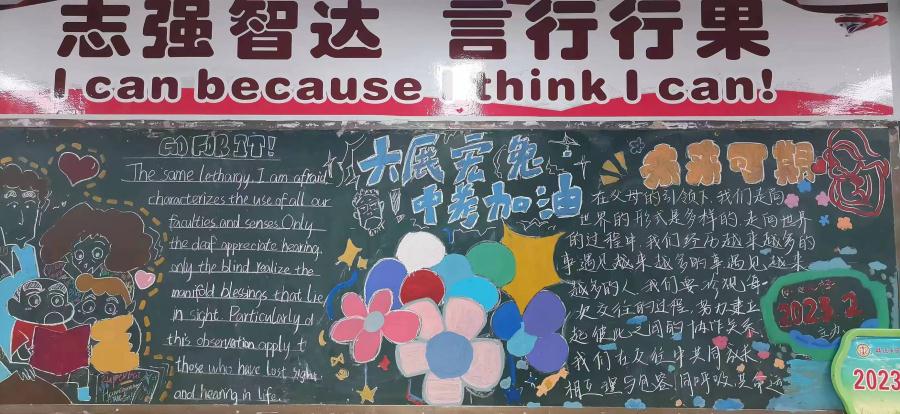 志强智达 言行行果
I can because I think I can!
GO FOR IT!
The same lethargy, I am afraid
characterizes the use of all our
faculties and senses. Only
the deaf appreciate hearing,
only the blind realize the
manifold blessings that lie
in sight. Particularly d
this observation apply t
those who have lost sight
and hearing in life.
大展宏兔·
中考加油
未来可期
在父母的引领下,我们走向
世界的形式是多样的.走向世界
的过程中,我们经历越来越多的
事遇见越来越多的事遇见越来
越多的人,我们要珍视每一
次交往的过程,努力建立
起彼此之间的协作关系
我们在交往中共同成长
相互理与包容,同呼吸,共命运
2023.2
2023